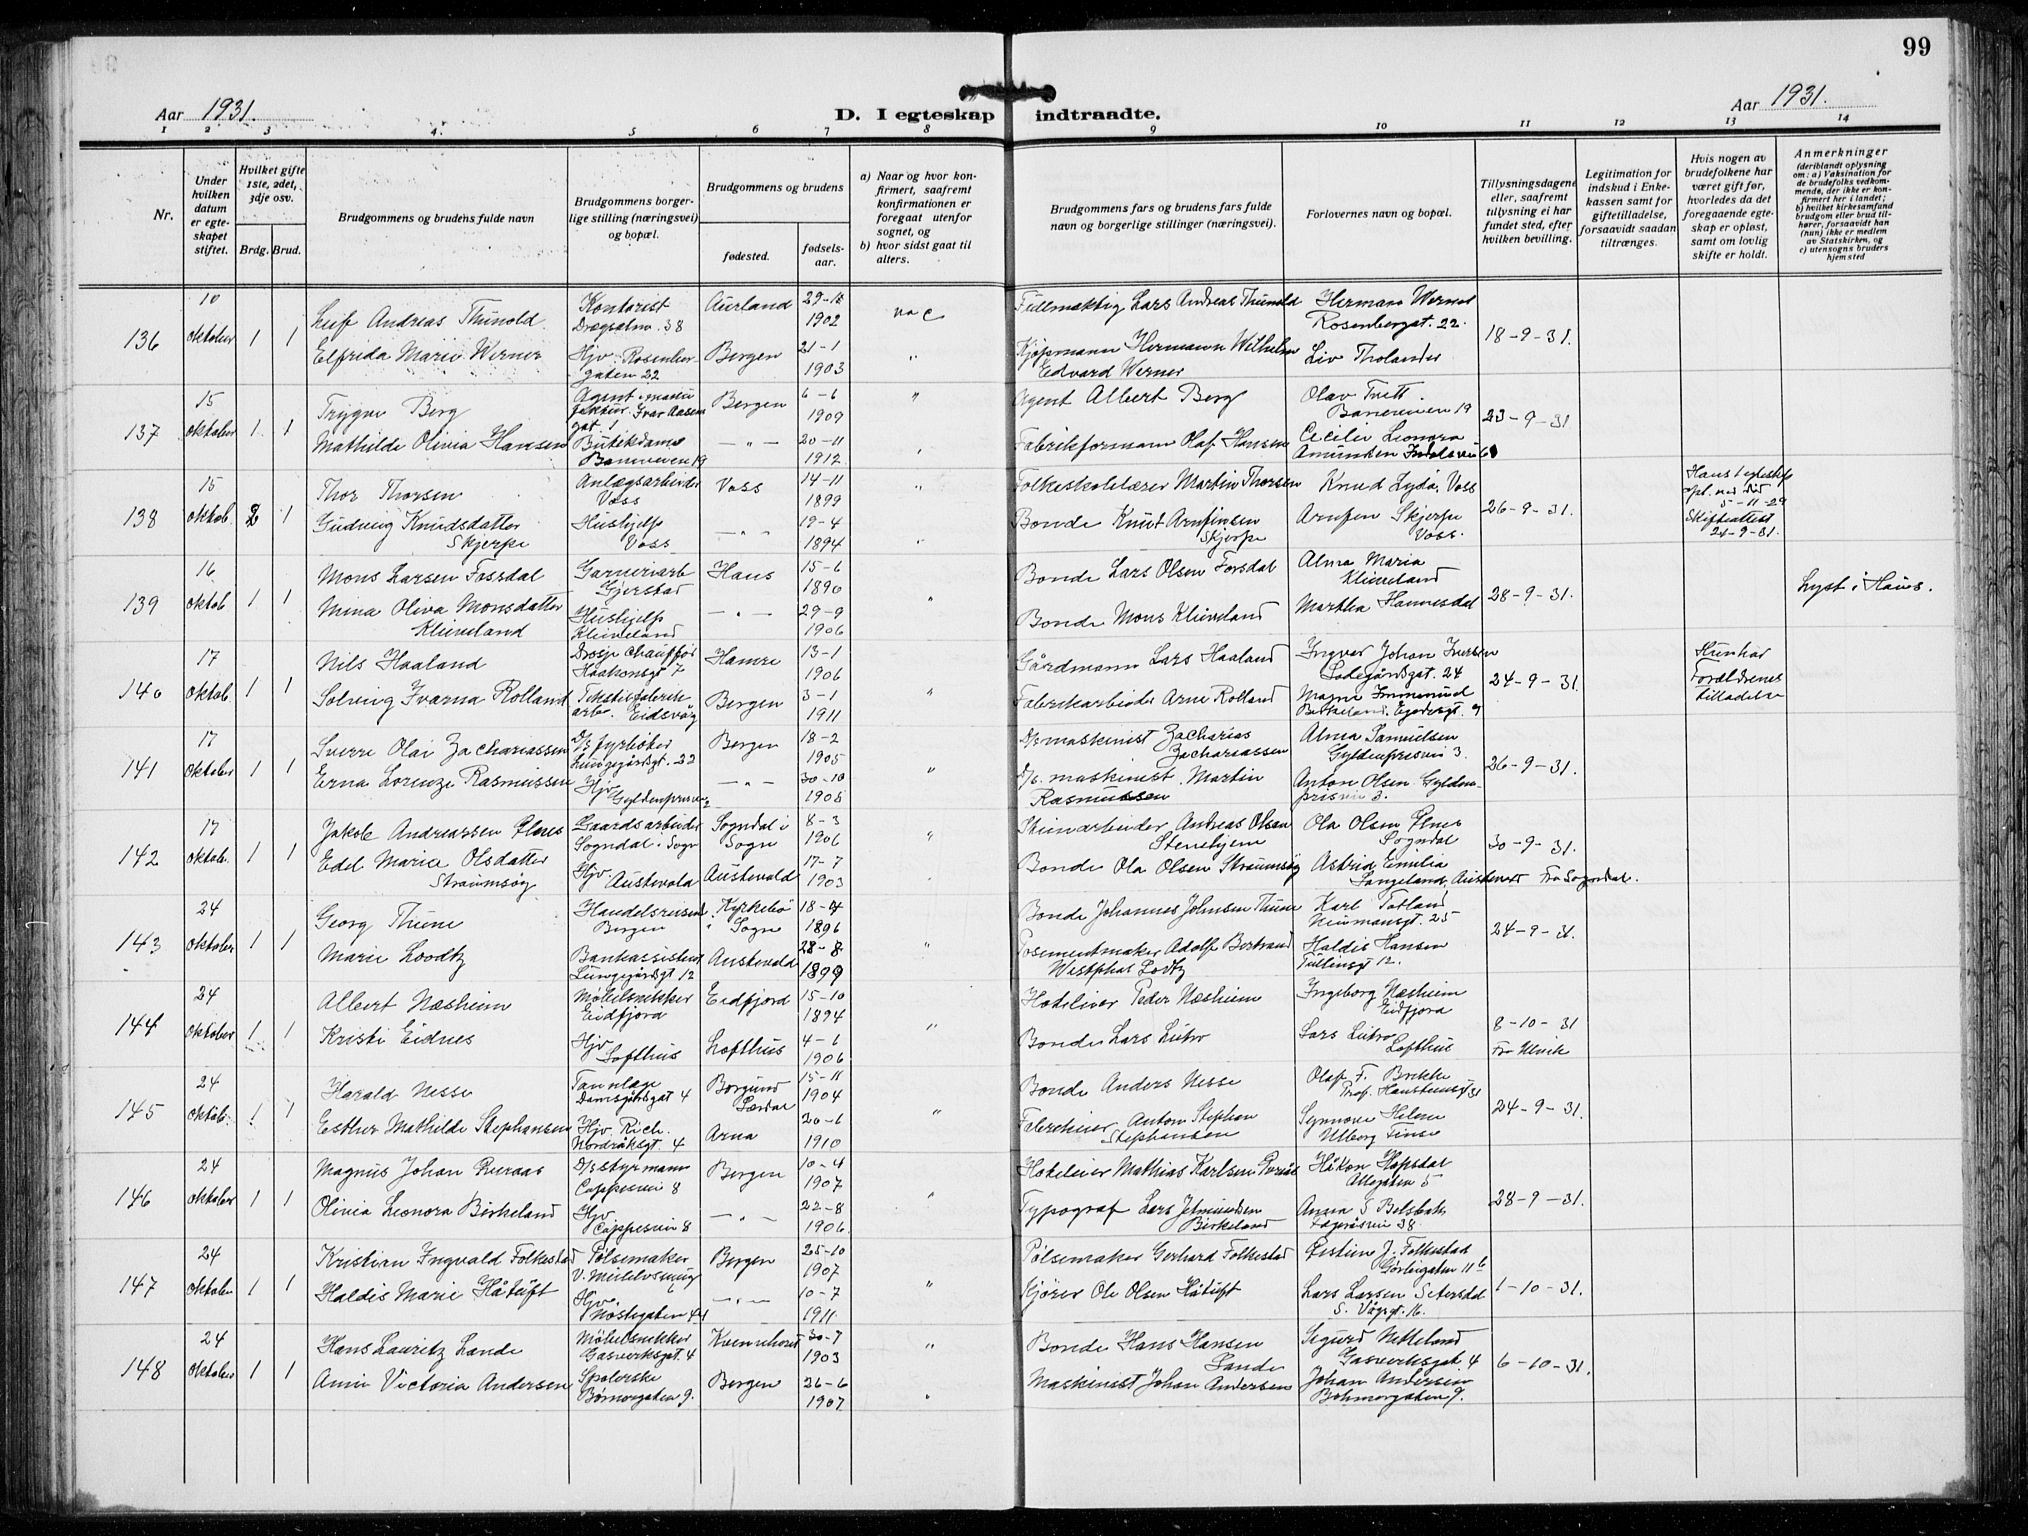 99
Aar 1931.
D. I egteskap indtraadte.
Aar 1931.
1 2 3 4. 5 6 7 8 9 10 11 12 13 14
Nr.
Under hvilken datum er egteskapet stiftet.
Hvilket gifte 1ste, 2det, 3dje osv.
Brdg. Brud.
Brudgommens og brudens fulde navn
Brudgommens borgerlige stilling (næringsvei) og bopæl.
Brudgommens og brudens
fødested.
fødselsaar.
a) Naar og hvor konfirmert, saafremt konfirmationen er foregaat utenfor sognet, og
b) hvor sidst gaat til alters.
Brudgommens fars og brudens fars fulde navn og borgerlige stillinger (næringsvei).
Forlovernes navn og bopæl.
Tillysningsdagene eller, saafremt tillysning ei har fundet sted, efter hvilken bevilling.
Legitimation for indskud i Enkekassen samt for giftetilladelse, forsaavidt saadan tiltrænges.
Hvis nogen av brudefolkene har været gift før, hvorledes da det foregaaende egteskap er opløst, samt om lovlig skifte er holdt.
Anmerkninger
(deriblandt oplysning om: a) Vaksination for de brudefolks vedkommende, der ikke er konfirmert her i landet; b) hvilket kirkesamfund brudgom eller brud tilhører, forsaavidt han (hun) ikke er medlem av Statskirken, og c) utensogns bruders hjemsted
136 10 oktober 1 1
Leif Andreas Thunold Kontorist Aurland 1902
Fullmektig Lars Andreas Thunold Herman Werner Rosenbergat. 22. 18-9-31.
Elfrida Marie Werner Hjv. Rosenbergaten 22 Bergen 21-1 1903 "
Kjøpmann Hermann Wilhelm Edvard Werner Liv Tholander
137 15 oktober 1 1
Trygve Berg Agent Ivar Aasens gat. 1 Bergen 6-6 1909 "
Agent Albert Berg Olav Tvett Baneveien 19 23-9-31
Mathilde Olivia Hansen Butikdame Baneveien 19 -"- 20-11 1912 "
Fabrikformann Olaf Hansen Cecilie Leonora Amundsen
138 15 oktob. 2 1
Thor Thorsen Anlægsarbeider Voss Voss 14-11 1899 "
Folkeskolelærer Martin Thorsen Knud Lydo, Voss 26-9-31.
Hans 1 egteskap opl. ved død 5-11-29 Skifteattest 24-9-31.
Gudveig Knudsdatter Skjerpe Hushjelp Voss -"- 19-4 1894 "
Bonde Knut Arnfinsen Skjerpe Arnfin Skjerpe Voss.
139 16 oktob 1 1
Mons Larsen Fossdal Garneriarb Gjerstad Haus 15-6 1890
Bonde Lars Olsen Forsdal Alma Maria Klieveland 28-9-31.
Lyst i Haus.
Mina Oliva Monsdatter Klieveland Hushjelp Klieveland -"- 29-9 1906 "
Bonde Mons Klieveland Martha Hannesdal
140 17 oktob. 1 1
Nils Haaland Drosje chauffør Haakonsgt 7 Hamre 13-1 1906
Gårdmann Lars Haaland Ingvar Johan Iversen Ladegårdsgat. 24 24-9-31.
Hun har Forældrenes tilladelse
Solveig Ivarna Rolland Tekstilfabrik arb. Eidsvåg Bergen 3-1 1911 "
Fabrikarbeider Arne Rolland Magne Immanuel Birkeland,
141 17 oktober 1 1
Sverre Olai Zachariassen D/s fyrbøter Lungegårdsgt. 22 Bergen 18-2 1905
D/s maskinist Zacharias Zachariassen Alma Samuelsen Gyldenprisvei 3. 26-9-31.
Erna Lorenze Rasmussen Hjv. Gyldenprisvei -"- 30-10 "
D/s. maskinist. Martin Rasmussen Anton Olsen Gyldenprisvei 3.
142 17 oktob. 1 1
Jakob Andreassen Flnes Gaardsarbeider Sogndal i Sogn Sogndal i Sogn 8-3 1906 "
Stenarbeider Andreas Olsen Stenehjem Ola Olsen Sogndal 30-9-31.
Edel Marie Olsdatter Straumsøy Hjv. Austevold Austevold 17-7 1903 "
Bonde Ola Olsen Straumsøy Astrid Emilia Langeland, Fra Sogndal.
143 24 oktober 1 1
Georg Thune Handelsreisend Bergen Kyrkebø Sogn 1896
Bonde Johannes Johnsen Thune Karl Totland Neumansgt. 25 24-9-31.
Marie Loodtz Bankassistent Lungegårdsgt 12 Austevold 28-8 1899 "
Posementmaker Adolf Bertrand Westphal Lodtz Haldis Hansen Tullinsgt 12.
144 24 oktober 1 1
Albert Næsheim Møbelsnikker Eidfjord Eidfjord 15-10 1894
Hoteleier Peder Næsheim Ingeborg Næsheim Eidfjord 8-10-31
Kristi Eidnes Hjv. Lofthus Lofthus 4-6 1906. "
Bonde Lars Lutro Lars Lutro Lofthus Fra Ulvik
145 24 oktob. 1 1
Harald Nesse Tannlæge Damsgårdsgat 4 Borgund Lærdal 15-11 1904
Bonde Anders Nesse Olaf F. Brekke Prof. Hansteensgt 31 24-9-31.
Esther Mathilde Stephansen Hjv. Rich. Nordråksgt. 4 Arna 20-6 1910 "
Anton Stephan Stephansen Synnøve Helene Ulberg Finse
146 24 oktober 1 1
Magnus Johan D/s styrmann Cappesvei 8 Bergen 10-4 1907
Hoteleier Mathias Karlsen Håkon Hopsdal 28-9-31.
Olivia Leonora Birkeland Hjv. Cappesvei 8 -"- 22-8 1906. "
Typograf Lars Birkeland Anna S 38.
147 24 oktober 1 1
Kristian Ingvald Folkestad Pølsemaker Bergen 25-10 1907
Pølsemaker Gerhard Folkestad J. Folkestad 11 b 1-10-31.
Haldis Marie Håtuft Hjv. Nøstegaten 44 -"- 10-7 1911. "
Kjører Ole Olsen Håtuft Lars Larsen Setersdal S. Vågsgt. 16.
148 24 oktober 1 1
Hans Lauritz Lande Møbelsnikker Gasverksgt. 4 30-7 1903 "
Bonde Hans Hansen Lande Sigurd Nitteland Gasverksgat. 4 6-10-31.
Annie Victoria Andersen Bergen 26-6 1907 "
Maskinist Johan Andersen Johan Andersen Bohmergaten 9.